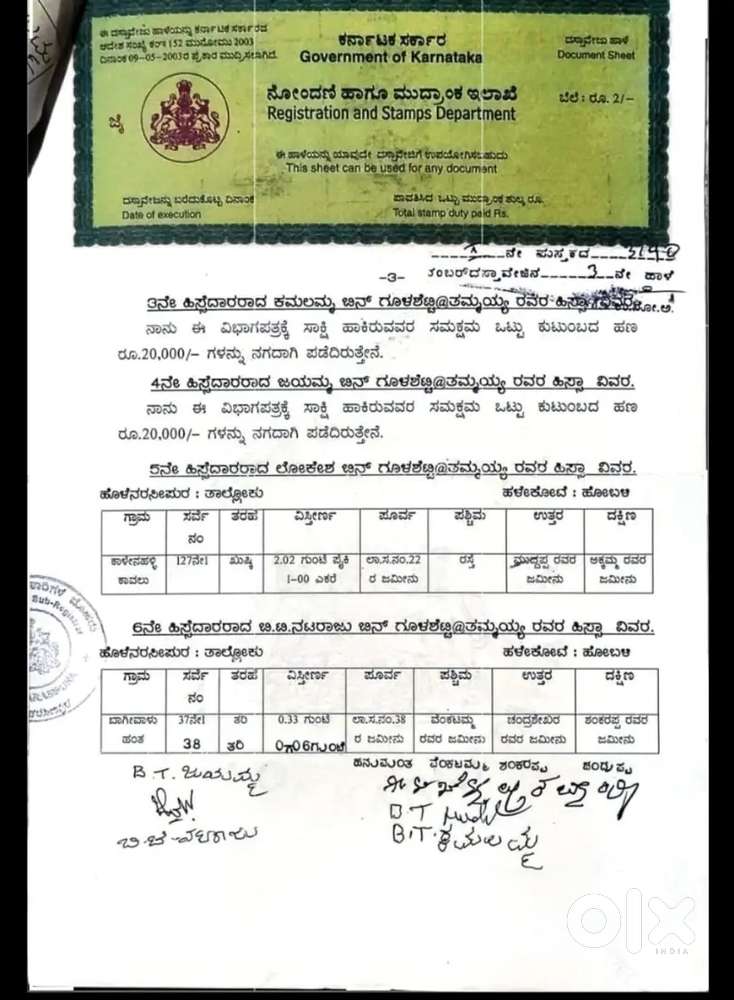 ಈ ದಸ್ತಾವೇಜು ಹಾಳೆಯನ್ನು ಕರ್ನಾಟಕ ಸರ್ಕಾರದ
ಆದೇಶ ಸಂಖ್ಯೆ ಕಂಇ 152 ಮುನೋಮು 2003
ದಿನಾಂಕ 09-05-2003ರ ಪ್ರಕಾರ ಮುದ್ರಿಸಲಾಗಿದೆ.
ಕರ್ನಾಟಕ ಸರ್ಕಾರ
Government of Karnataka
ದಸ್ತಾವೇಜು ಹಾಳೆ
Document Sheet
ನೋಂದಣಿ ಹಾಗೂ ಮುದ್ರಾಂಕ ಇಲಾಖೆ
Registration and Stamps Department
ಬೆಲೆ : ರೂ. 2/-
ಈ ಹಾಳೆಯನ್ನು ಯಾವುದೇ ದಸ್ತಾವೇಜಿಗೆ ಉಪಯೋಗಿಸಬಹುದು
This sheet can be used for any document
ದಸ್ತಾವೇಜನ್ನು ಬರೆದುಕೊಟ್ಟ ದಿನಾಂಕ
Date of execution
ಪಾವತಿಸಿದ ಒಟ್ಟು ಮುದ್ರಾಂಕ ಶುಲ್ಕ ರೂ.
Total stamp duty paid Rs.
ನೇ ಪುಸ್ತಕದ
-3- ನಂಬರ್ ದಸ್ತಾವೇಜಿನ 3 ನೇ ಹಾಳೆ
3ನೇ ಹಿಸ್ಸೆದಾರರಾದ ಕಮಲಮ್ಮ ಬಿನ್ ಗೂಳಶೆಟ್ಟಿ@ತಮ್ಮಯ್ಯ ರವರ ಹಿಸ್ಸಾ ವಿವರ.
ನಾನು ಈ ವಿಭಾಗಪತ್ರಕ್ಕೆ ಸಾಕ್ಷಿ ಹಾಕಿರುವವರ ಸಮಕ್ಷಮ ಒಟ್ಟು ಕುಟುಂಬದ ಹಣ
ರೂ.20,000/- ಗಳನ್ನು ನಗದಾಗಿ ಪಡೆದಿರುತ್ತೇನೆ.
4ನೇ ಹಿಸ್ಸೆದಾರರಾದ ಜಯಮ್ಮ ಬಿನ್ ಗೂಳಶೆಟ್ಟಿ@ತಮ್ಮಯ್ಯ ರವರ ಹಿಸ್ಸಾ ವಿವರ.
ನಾನು ಈ ವಿಭಾಗಪತ್ರಕ್ಕೆ ಸಾಕ್ಷಿ ಹಾಕಿರುವವರ ಸಮಕ್ಷಮ ಒಟ್ಟು ಕುಟುಂಬದ ಹಣ
ರೂ.20,000/- ಗಳನ್ನು ನಗದಾಗಿ ಪಡೆದಿರುತ್ತೇನೆ.
5ನೇ ಹಿಸ್ಸೆದಾರರಾದ ಲೋಕೇಶ ಬಿನ್ ಗೂಳಶೆಟ್ಟಿ@ತಮ್ಮಯ್ಯ ರವರ ಹಿಸ್ಸಾ ವಿವರ.
ಹೊಳೆನರಸೀಪುರ : ತಾಲ್ಲೋಕು ಹಳೇಕೋಟೆ : ಹೋಬಳಿ
ಗ್ರಾಮ ಸರ್ವೆ ತರಹೆ ವಿಸ್ತೀರ್ಣ ಪೂರ್ವ ಪಶ್ಚಿಮ ಉತ್ತರ ದಕ್ಷಿಣ
ನಂ
ಕಾಳೇನಹಳ್ಳಿ 127ನೇ1 ಖುಷ್ಕಿ 2.02 ಗುಂಟೆ ಪೈಕಿ ಲಾ.ಸ.ನಂ.22 ರಸ್ತೆ ಮುದ್ದಪ್ಪ ರವರ ಅಕ್ಕಮ್ಮ ರವರ
ಕಾವಲು 1-00 ಎಕರೆ ರ ಜಮೀನು ಜಮೀನು ಜಮೀನು
6ನೇ ಹಿಸ್ಸೆದಾರರಾದ ಬಿ.ಟಿ.ನಟರಾಜು ಬಿನ್ ಗೂಳಶೆಟ್ಟಿ@ತಮ್ಮಯ್ಯ ರವರ ಹಿಸ್ಸಾ ವಿವರ.
ಹೊಳೆನರಸೀಪುರ : ತಾಲ್ಲೋಕು ಹಳೇಕೋಟೆ : ಹೋಬಳಿ
ಗ್ರಾಮ ಸರ್ವೆ ತರಹೆ ವಿಸ್ತೀರ್ಣ ಪೂರ್ವ ಪಶ್ಚಿಮ ಉತ್ತರ ದಕ್ಷಿಣ
ನಂ
ಬಾಗೀವಾಳು 37ನೇ1 ತರಿ 0.33 ಗುಂಟೆ ಲಾ.ಸ.ನಂ.38 ವೆಂಕಟಮ್ಮ ಚಂದ್ರಶೇಖರ ಶಂಕರಪ್ಪ ರವರ
ಹಂತ 38 ತರಿ ರ ಜಮೀನು ರವರ ಜಮೀನು ರವರ ಜಮೀನು ಜಮೀನು
ಹನುಮಂತ ವೆಂಕಟಮ್ಮ ಶಂಕರಪ್ಪ
B.T. ಜಯಮ್ಮ
B.T
B.T. ಕಮಲಮ್ಮ
Sub-Registrar
olx
INDIA